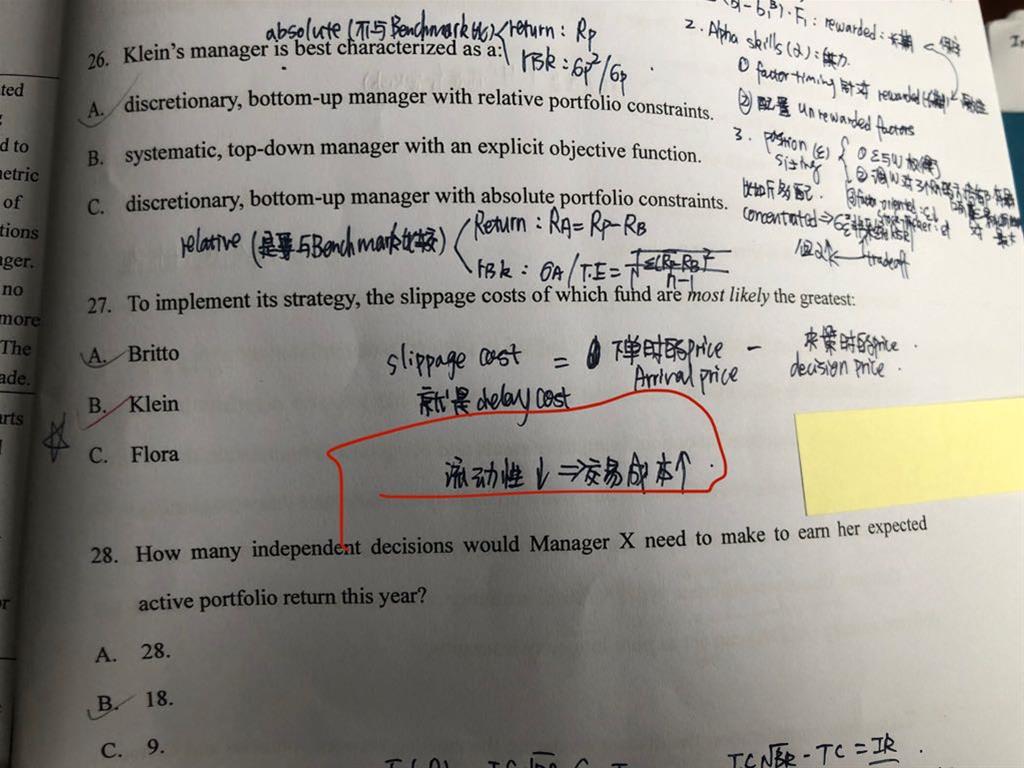 absolute (不与Benchmark比) return: Rp
risk: σp²/σp
26. Klein's manager is best characterized as a:
A. discretionary, bottom-up manager with relative portfolio constraints.
B. systematic, top-down manager with an explicit objective function.
C. discretionary, bottom-up manager with absolute portfolio constraints.
relative (是要与Benchmark比较)
Return: RA = Rp-RB
risk: σA/T.E =
n-1
27. To implement its strategy, the slippage costs of which fund are most likely the greatest:
A. Britto
B. Klein
C. Flora
slippage cost = 下单时的price - 决策时的price.
Arrival price decision price.
就是delay cost
流动性↓⇒交易成本↑.
28. How many independent decisions would Manager X need to make to earn her expected
active portfolio return this year?
A. 28.
B. 18.
C. 9.
2. Alpha skills (α): 能力.
① factor timing
② 配置 unrewarded factors
3. position (ε)
sizing
concentrated ⇒
tradeoff
ted
d to
netric
of
tions
ager.
no
more
The
ade.
arts
or